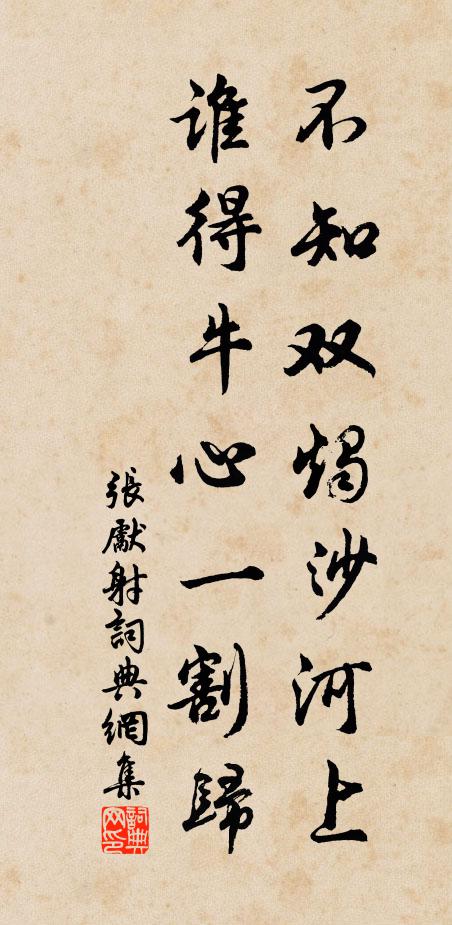 不知双燭沙河上
誰得牛心一割歸
張獻射詞典網集
詞典网印